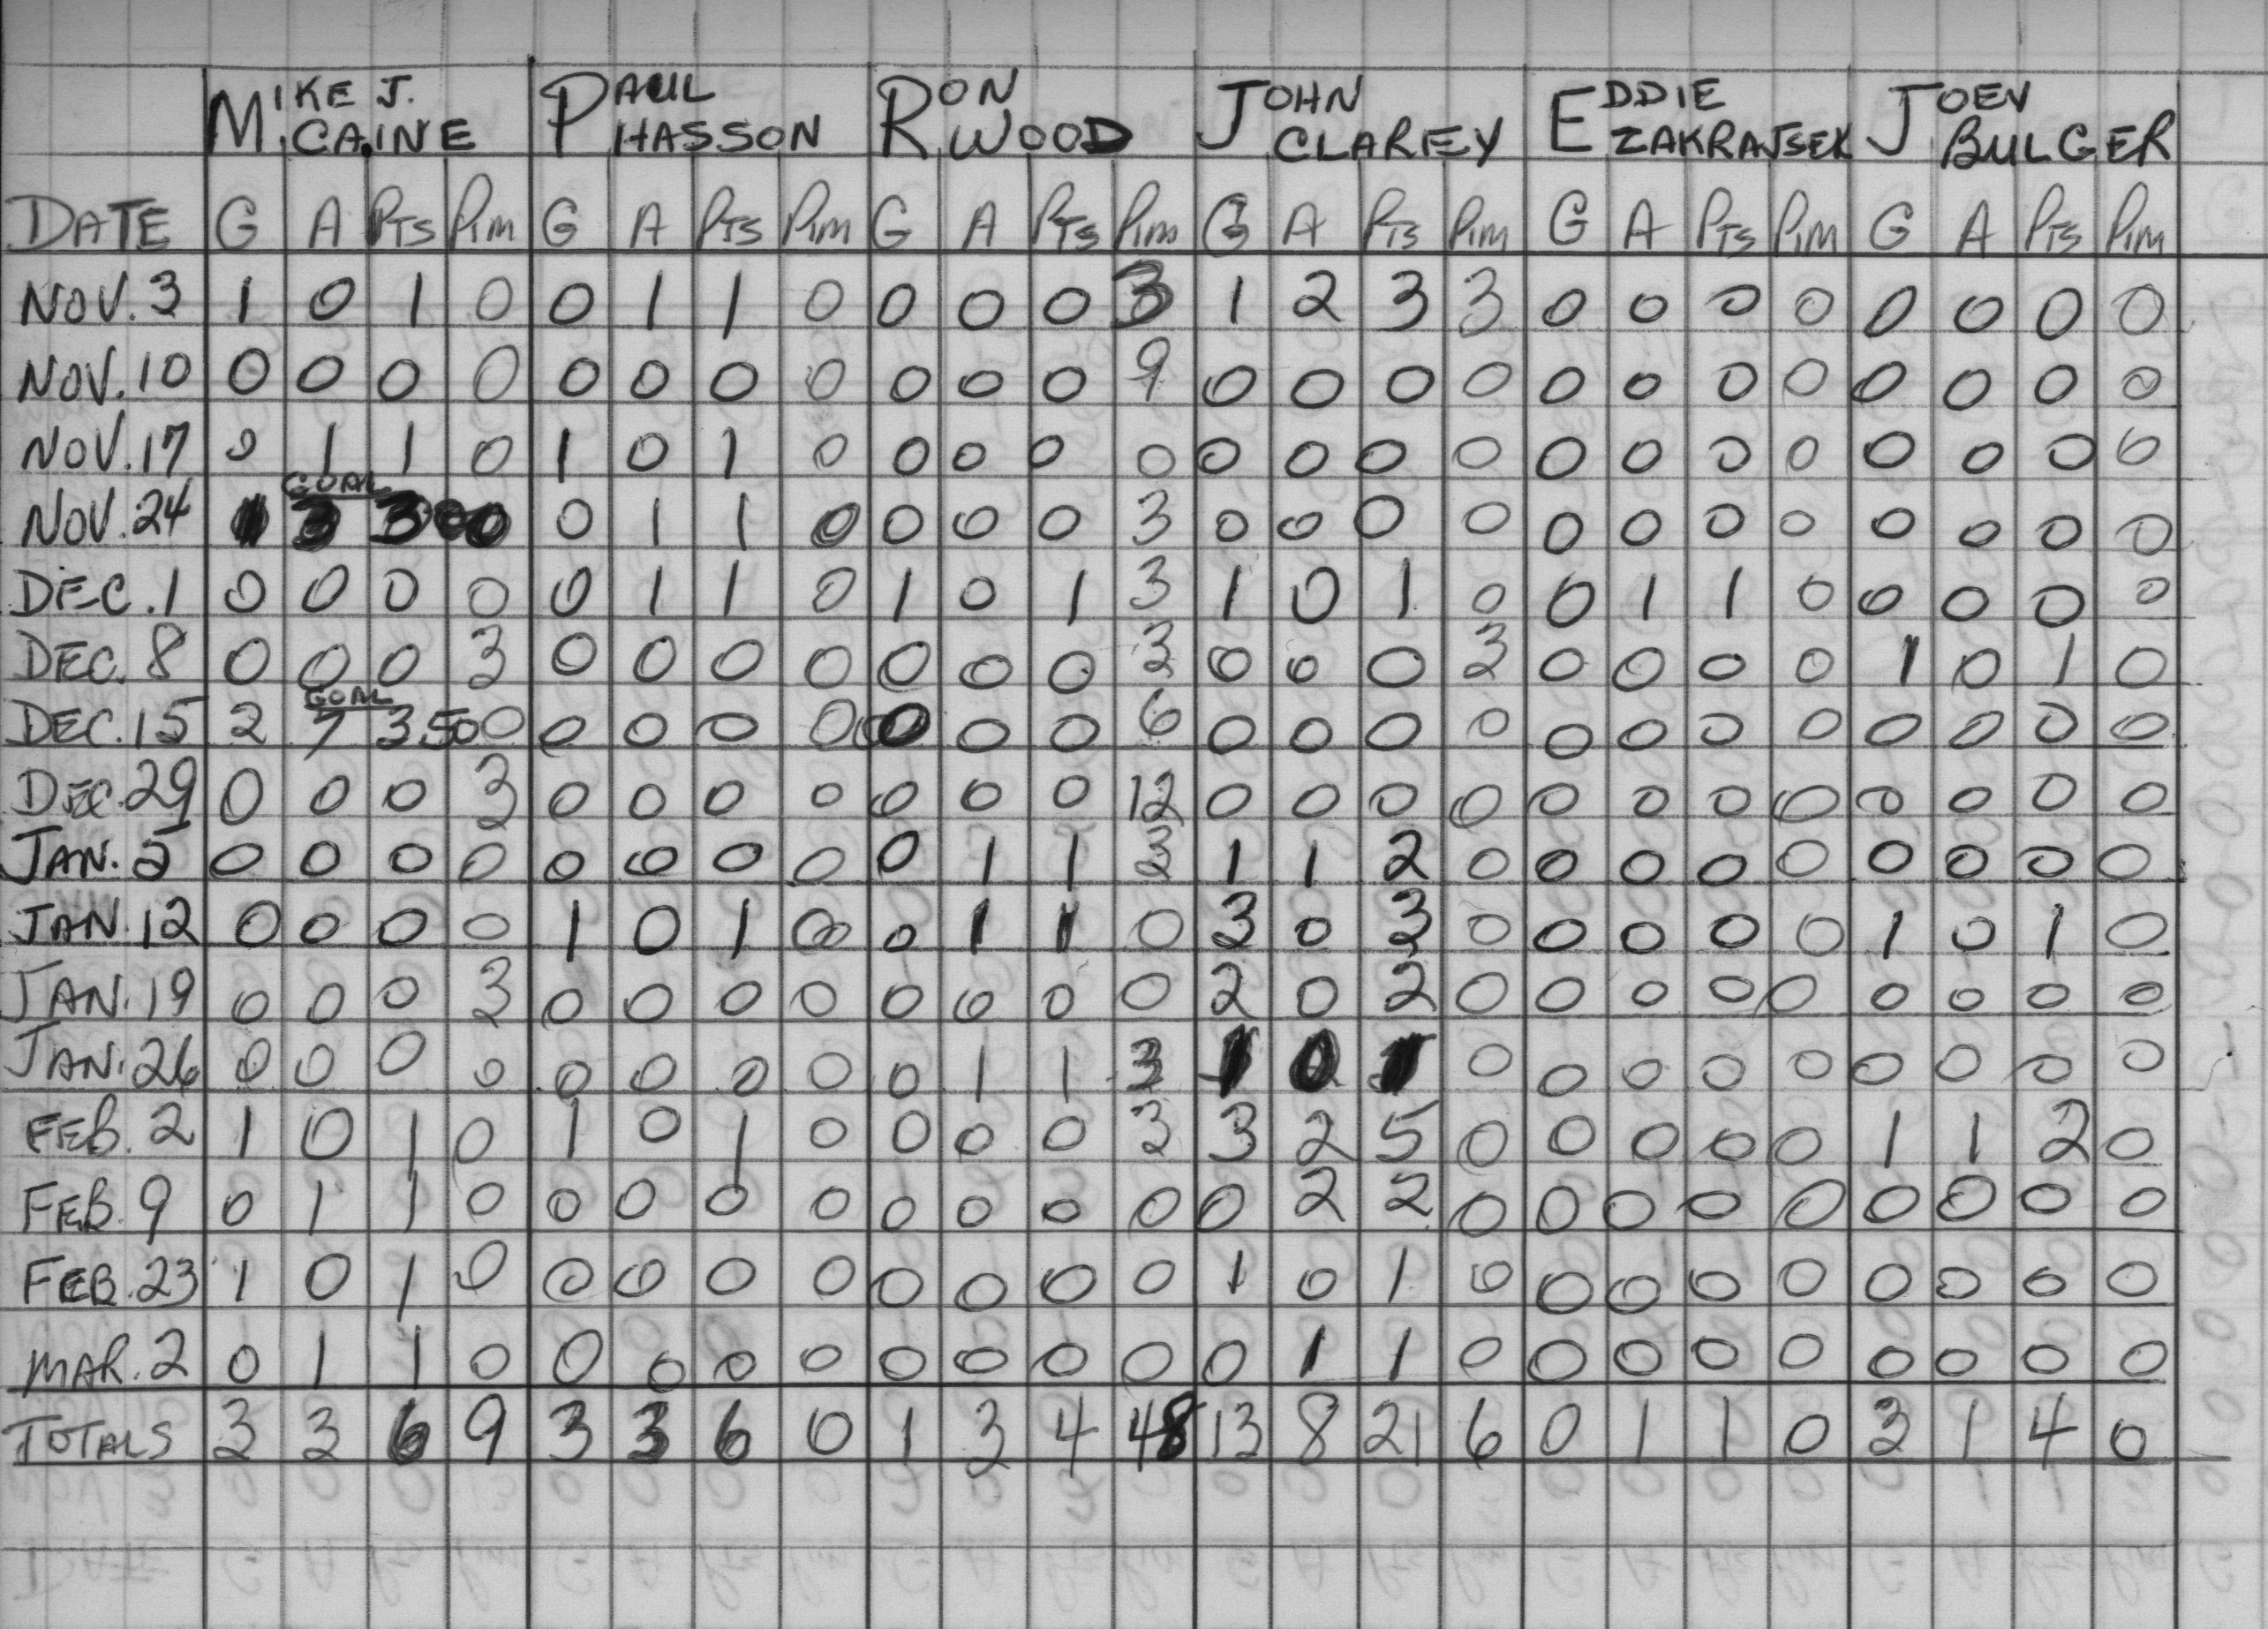 MIKE J. CAINE PAUL HASSON RON WOOD JOHN CLAREY EDDIE ZAKRAJSEK JOEY BULGER
DATE G A PTS PIM G A PTS PIM G A PTS PIM G A PTS PIM G A PTS PIM G A PTS PIM
NOV. 3 1 0 1 0 0 1 1 0 0 0 0 3 1 2 3 3 0 0 0 0 0 0 0 0
NOV. 10 0 0 0 0 0 0 0 0 0 0 0 9 0 0 0 0 0 0 0 0 0 0 0 0
NOV. 17 0 1 1 0 1 0 1 0 0 0 0 0 0 0 0 0 0 0 0 0 0 0 0 0
GOAL
NOV. 24 1 3 3 00 0 1 1 0 0 0 0 3 0 0 0 0 0 0 0 0 0 0 0 0
DEC. 1 0 0 0 0 0 1 1 0 1 0 1 3 1 0 1 0 0 1 1 0 0 0 0 0
DEC. 8 0 0 0 3 0 0 0 0 0 0 0 3 0 0 0 3 0 0 0 0 1 0 1 0
GOAL
DEC. 15 2 7 3.50 0 0 0 0 0 0 0 0 6 0 0 0 0 0 0 0 0 0 0 0 0
DEC. 29 0 0 0 3 0 0 0 0 0 0 0 12 0 0 0 0 0 0 0 0 0 0 0 0
JAN. 5 0 0 0 0 0 0 0 0 0 1 1 3 1 1 2 0 0 0 0 0 0 0 0 0
JAN. 12 0 0 0 0 1 0 1 0 0 1 1 0 3 0 3 0 0 0 0 0 1 0 1 0
JAN. 19 0 0 0 3 0 0 0 0 0 0 0 0 2 0 2 0 0 0 0 0 0 0 0 0
JAN. 26 0 0 0 0 0 0 0 0 0 1 1 3 1 0 1 0 0 0 0 0 0 0 0 0
FEB. 2 1 0 1 0 1 0 1 0 0 0 0 3 3 2 5 0 0 0 0 0 1 1 2 0
FEB. 9 0 1 1 0 0 0 0 0 0 0 0 0 0 2 2 0 0 0 0 0 0 0 0 0
FEB. 23 1 0 1 0 0 0 0 0 0 0 0 0 1 0 1 0 0 0 0 0 0 0 0 0
MAR. 2 0 1 1 0 0 0 0 0 0 0 0 0 0 1 1 0 0 0 0 0 0 0 0 0
TOTALS 3 3 6 9 3 3 6 0 1 3 4 48 13 8 21 6 0 1 1 0 3 1 4 0